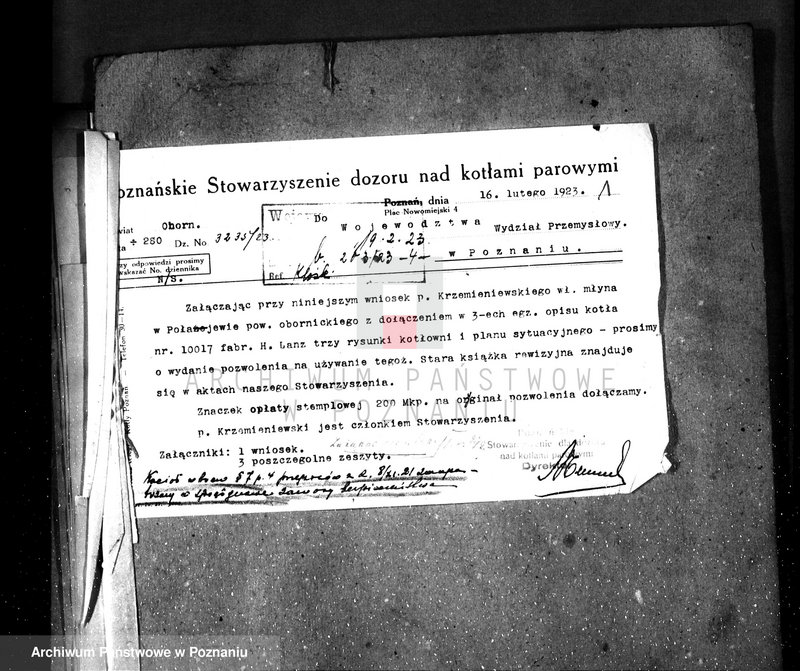 oznańskie Stowarzyszenie dozoru nad kotłami parowymi
Poznań, dnia 16. lutego 1923. 1
Plac Nowomiejski 4
wiat Oborn.
÷ 250 Dz. No 3235/23
Do Województwa Wydział Przemysłowy.
19.2.23
w Poznaniu.
odpowiedzi prosimy
wskazać No. dziennika
N/S.
Ref.
Załączając przy niniejszym wniosek p. Krzemieniewskiego wł. młyna
w Połajewie pow. obornickiego z dołączeniem w 3-ech egz. opisu kotła
nr. 10017 fabr. H. Lanz trzy rysunki kotłowni i planu sytuacyjnego - prosimy
o wydanie pozwolenia na używanie tegoż. Stara książka rewizyjna znajduje
się w aktach naszego Stowarzyszenia.
Znaczek opłaty stemplowej 200 Mkp. na orginał pozwolenia dołączamy.
p. Krzemieniewski jest członkiem Stowarzyszenia.
Załączniki: 1 wniosek.
3 poszczególne zeszyty.
Stowarzyszenie
nad kotłami parowymi
Dyrek
Telefon
ARCHIWUM PAŃSTWOWE
W POZNANIU
Archiwum Państwowe w Poznaniu